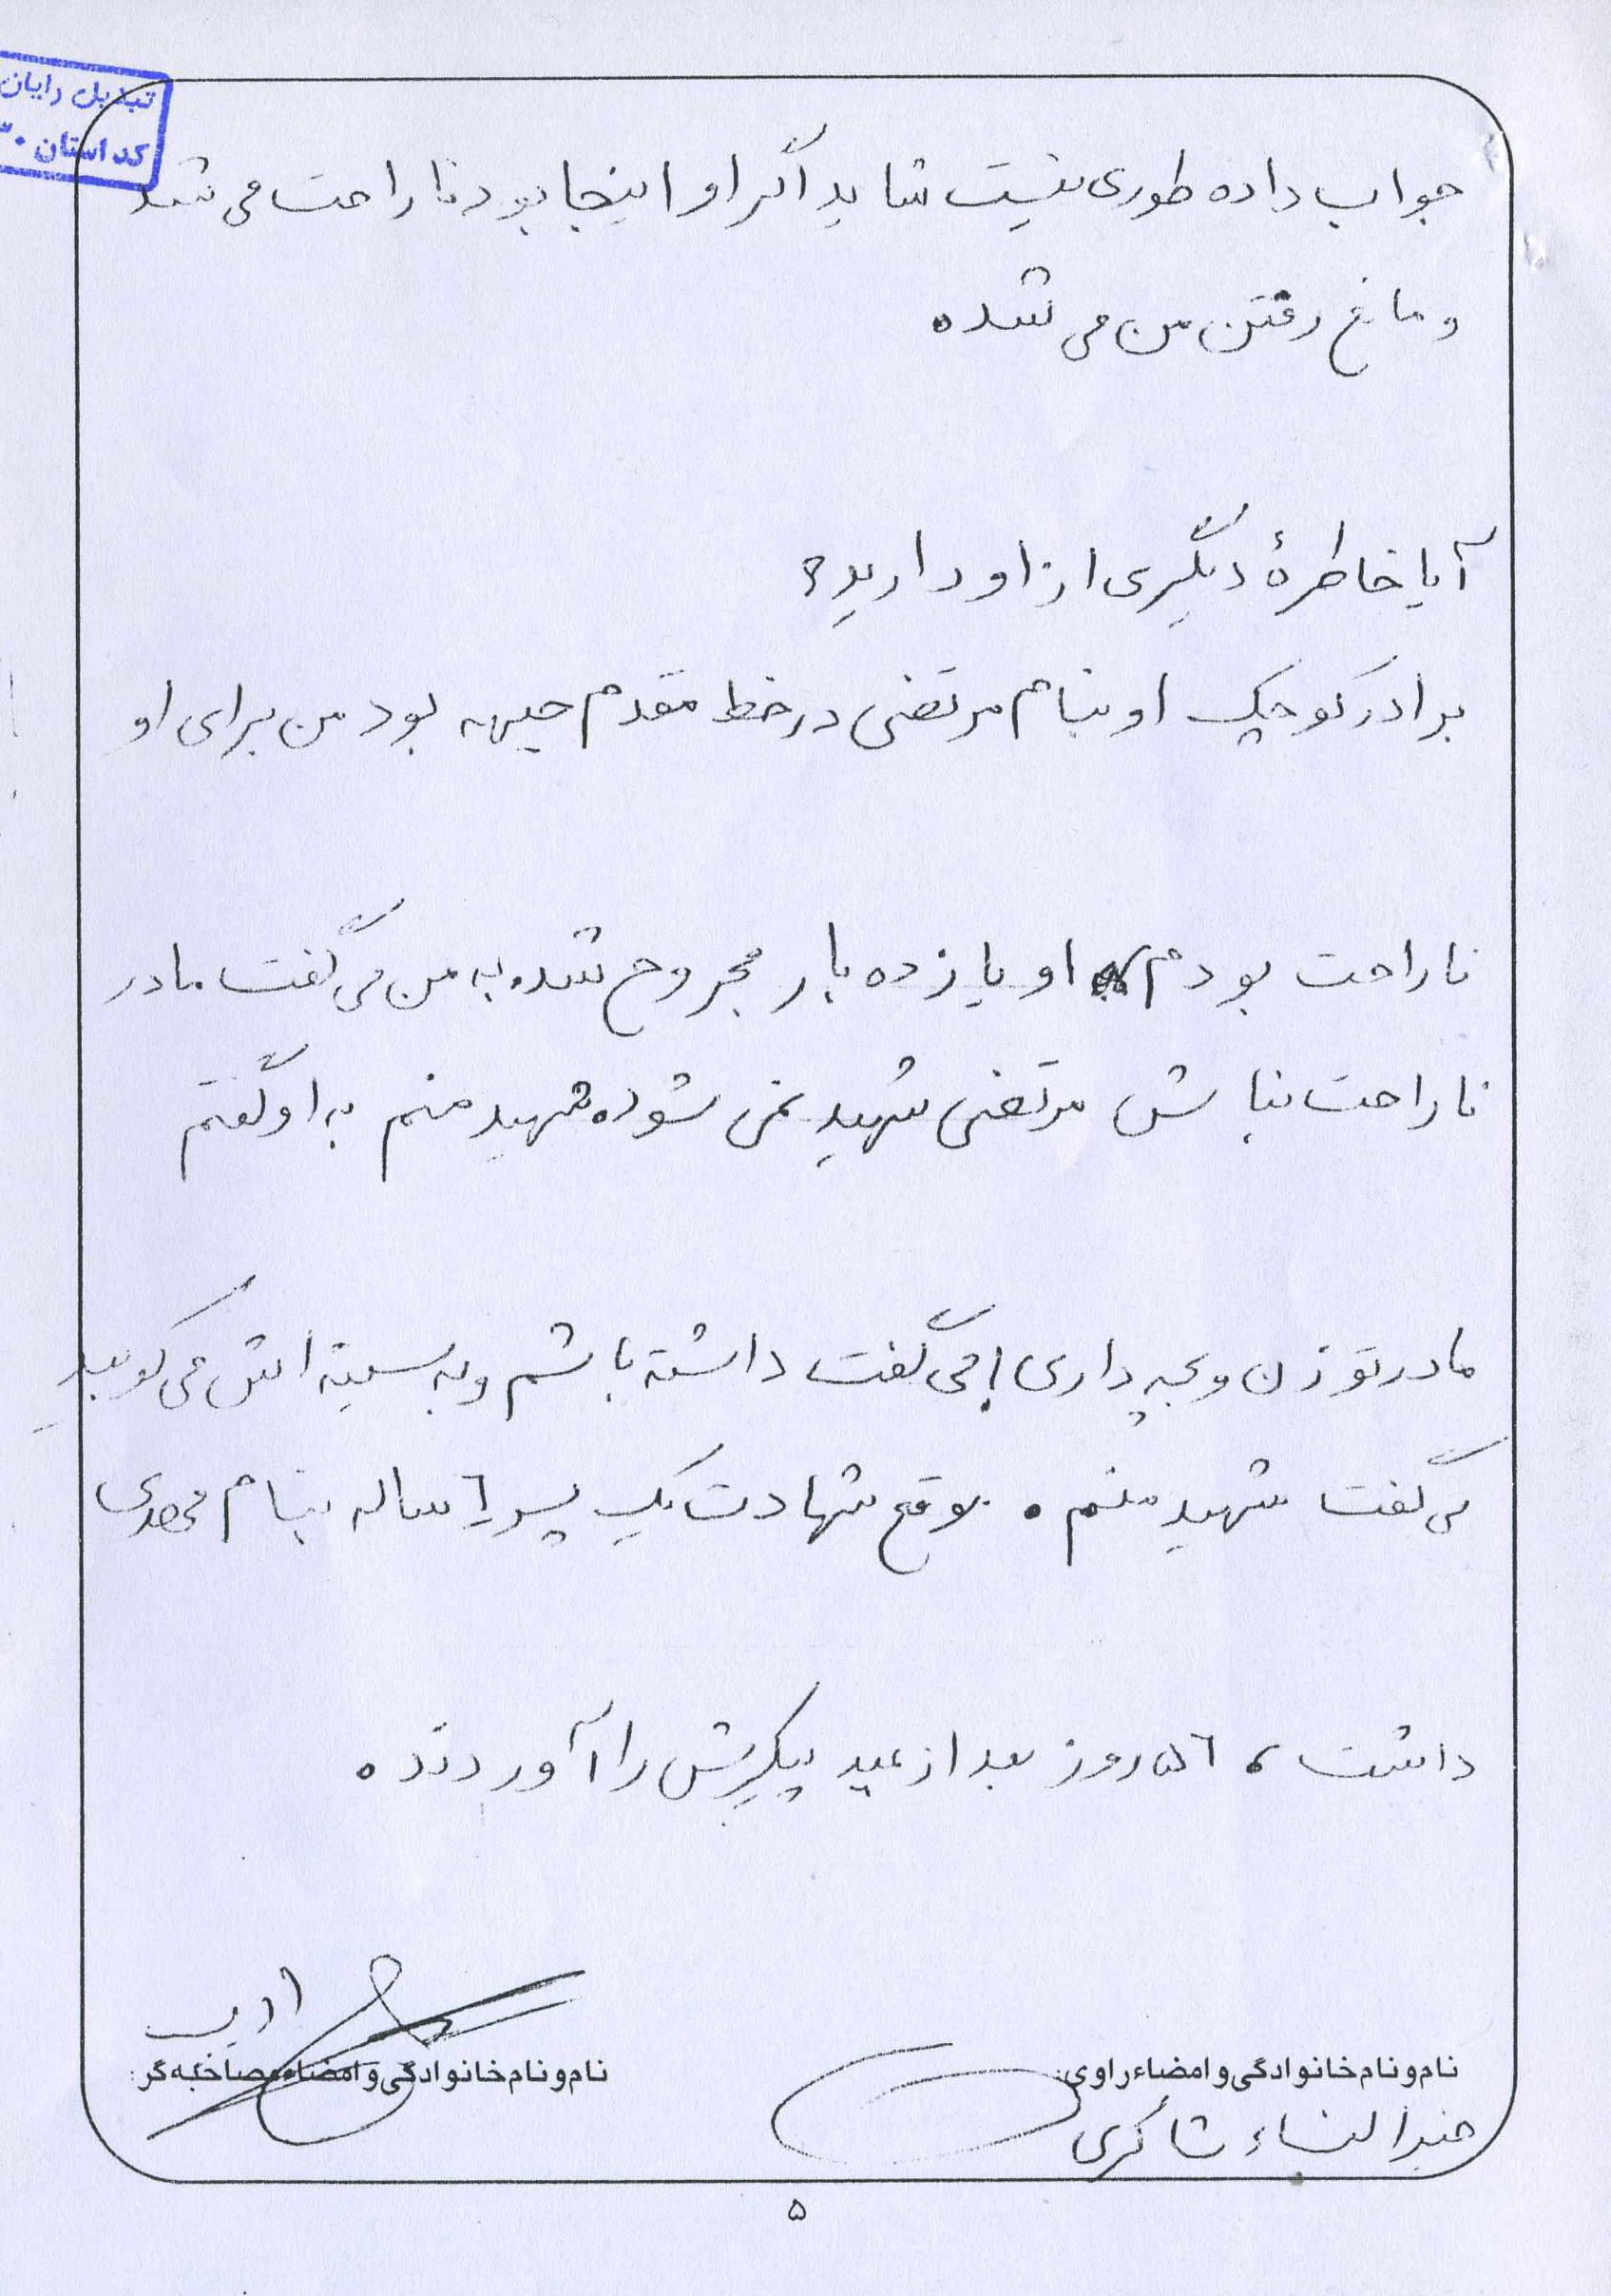 تبدیل رایان
کد استان ۳۰
جواب داده طوری نیست شاید اگر او اینجا بود ناراحت می شد
و مانع رفتن من می شد.
آیا خاطرهٔ دیگری از او دارید؟
برادر کوچک او بنام مرتضی در خط مقدم جبهه بود من برای او
ناراحت بودم او یازده بار مجروح شده به من می گفت مادر
ناراحت نباش مرتضی شهید نمی شود. شهید منم به او گفتم
مادر تو زن و بچه داری! می گفت داشته باشم و به سینه اش می کوبید
می گفت شهید منم. موقع شهادت یک پسر ۶ ساله بنام مهدی
داشت، ۵۶ روز بعد از عید پیکرش را آوردند.
نام و نام خانوادگی و امضاء راوی:
خیرالنساء شاکری
نام و نام خانوادگی و امضاء مصاحبه گر:
۵